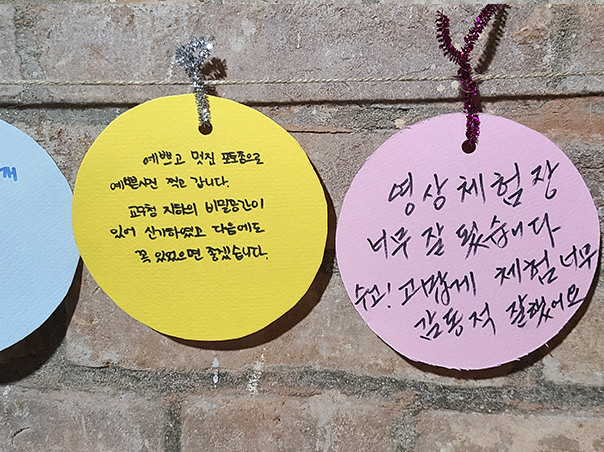 예쁘고 멋집 포토존으로
예쁜사진 찍고 갑니다.
교구청 지하의 비밀공간이
있어 신기하였고 다음에도
꼭 있었으면 좋겠습니다.
영상체험장
너무 잘 됬습니다
수고! 고맙게 체험 너무
감동적 잘했어요